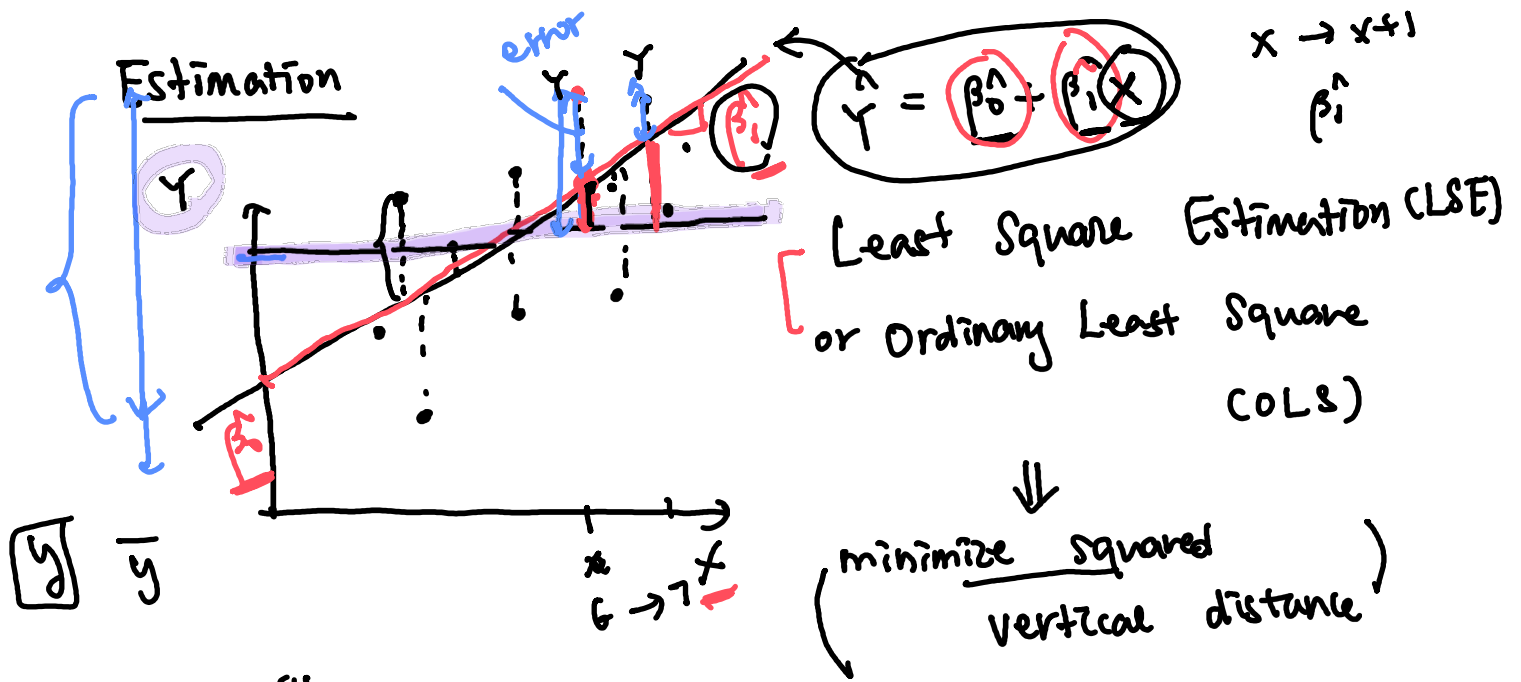 Estimation
error
Y
Y
Ŷ = β̂0 + β̂1 X
x → x+1
β̂1
β̂1
Y
Least Square Estimation (LSE)
or Ordinary Least Square
(OLS)
β̂0
⇓
y
ȳ
x
X
6 → 7
minimize squared
vertical distance